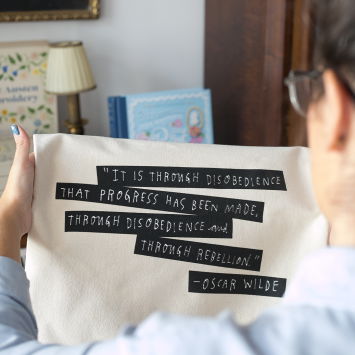 Austen
Embroidery
"IT IS THROUGH DISOBEDIENCE
THAT PROGRESS HAS BEEN MADE,
THROUGH DISOBEDIENCE and
THROUGH REBELLION."
-OSCAR WILDE